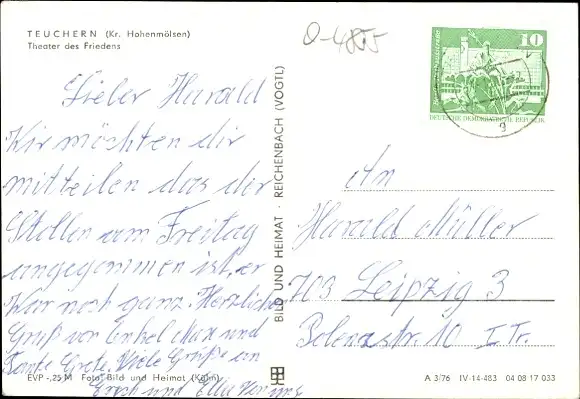 TEUCHERN (Kr. Hohenmölsen)
Theater des Friedens
O-4855
10
DEUTSCHE DEMOKRATISCHE REPUBLIK
Lieber Harald
Wir möchten dir
mitteilen das der
Stollen am Freitag
angegommen ist, er
War noch ganz. Herzliche
Gruß von Onkel Max und
Tante Grete. Viele Grüße an
Erich und Ella
BILD UND HEIMAT · REICHENBACH (VOGTL)
An
Harald Müller
703 Leipzig 3
Bolenastr. 10 I. Tr.
EVP -,25 M Foto: Bild und Heimat (Kühn)
A 3/76 IV-14-483 04 08 17 033